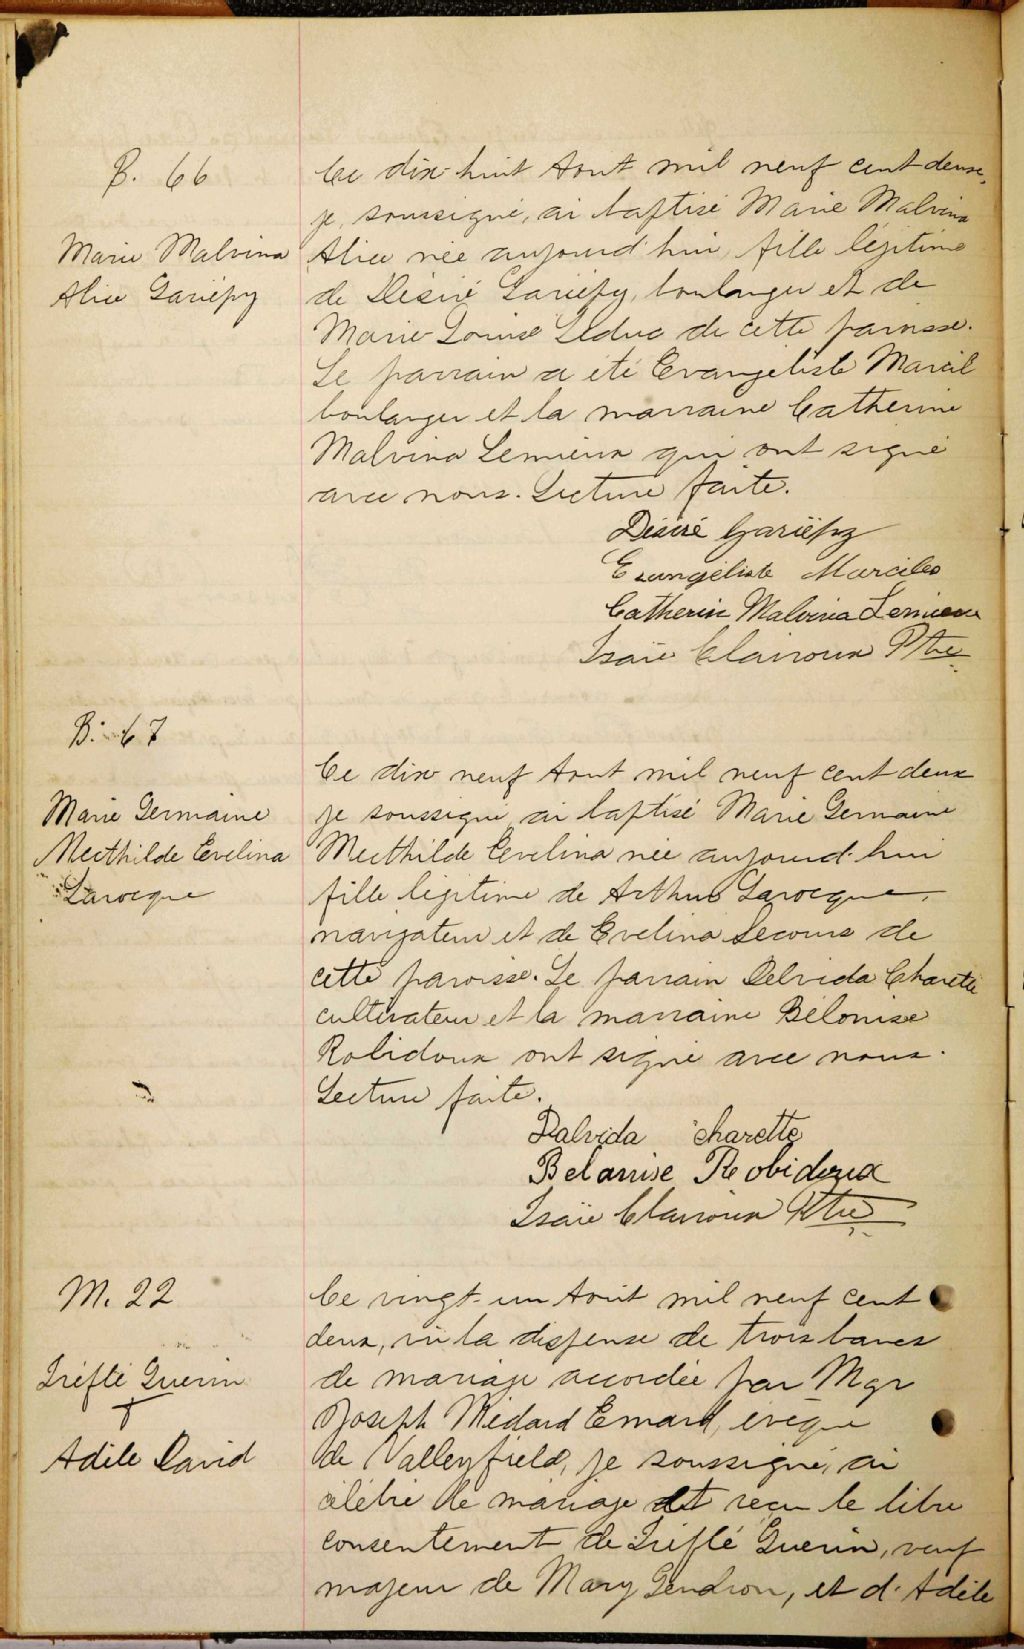 B. 66
Marie Malvina
Alice Gariépy
Ce dix-huit Aout mil neuf cent deux,
je, soussigné, ai baptisé Marie Malvina
Alice née aujourd'hui, fille légitime
de Désiré Gariépy, boulanger et de
Marie-Louise Leduc de cette paroisse.
Le parrain a été Evangéliste Marcil
boulanger et la marraine Catherine
Malvina Lemieux qui ont signé
avec nous. Lecture faite.
Désiré Gariépy
Evangéliste Marciles
Catherine Malvina Lemieux
Isaïe Clairoux Ptre
B. 67
Marie Germaine
Mecthilde Evelina
Larocque
Ce dix-neuf Aout mil neuf cent deux
je soussigné ai baptisé Marie Germaine
Mecthilde Evelina née aujourd'hui
fille légitime de Arthur Larocque,
navigateur et de Evelina Lecours de
cette paroisse. Le parrain Delvida Charette
cultivateur et la marraine Bélonise
Robidoux ont signé avec nous.
Lecture faite.
Dalvida charette
Belanise Robidoux
Isaïe Clairoux Ptre
M. 22
Tréflé Guerin
+
Adèle David
Ce vingt-un Aout mil neuf cent
deux, vu la dispense de trois bancs
de mariage accordée par Mgr
Joseph Médard Emard, évêque
de Valleyfield, je soussigné, ai
célébré le mariage et reçu le libre
consentement de Tréflé Guerin, veuf
majeur de Mary Gendron, et d'Adèle